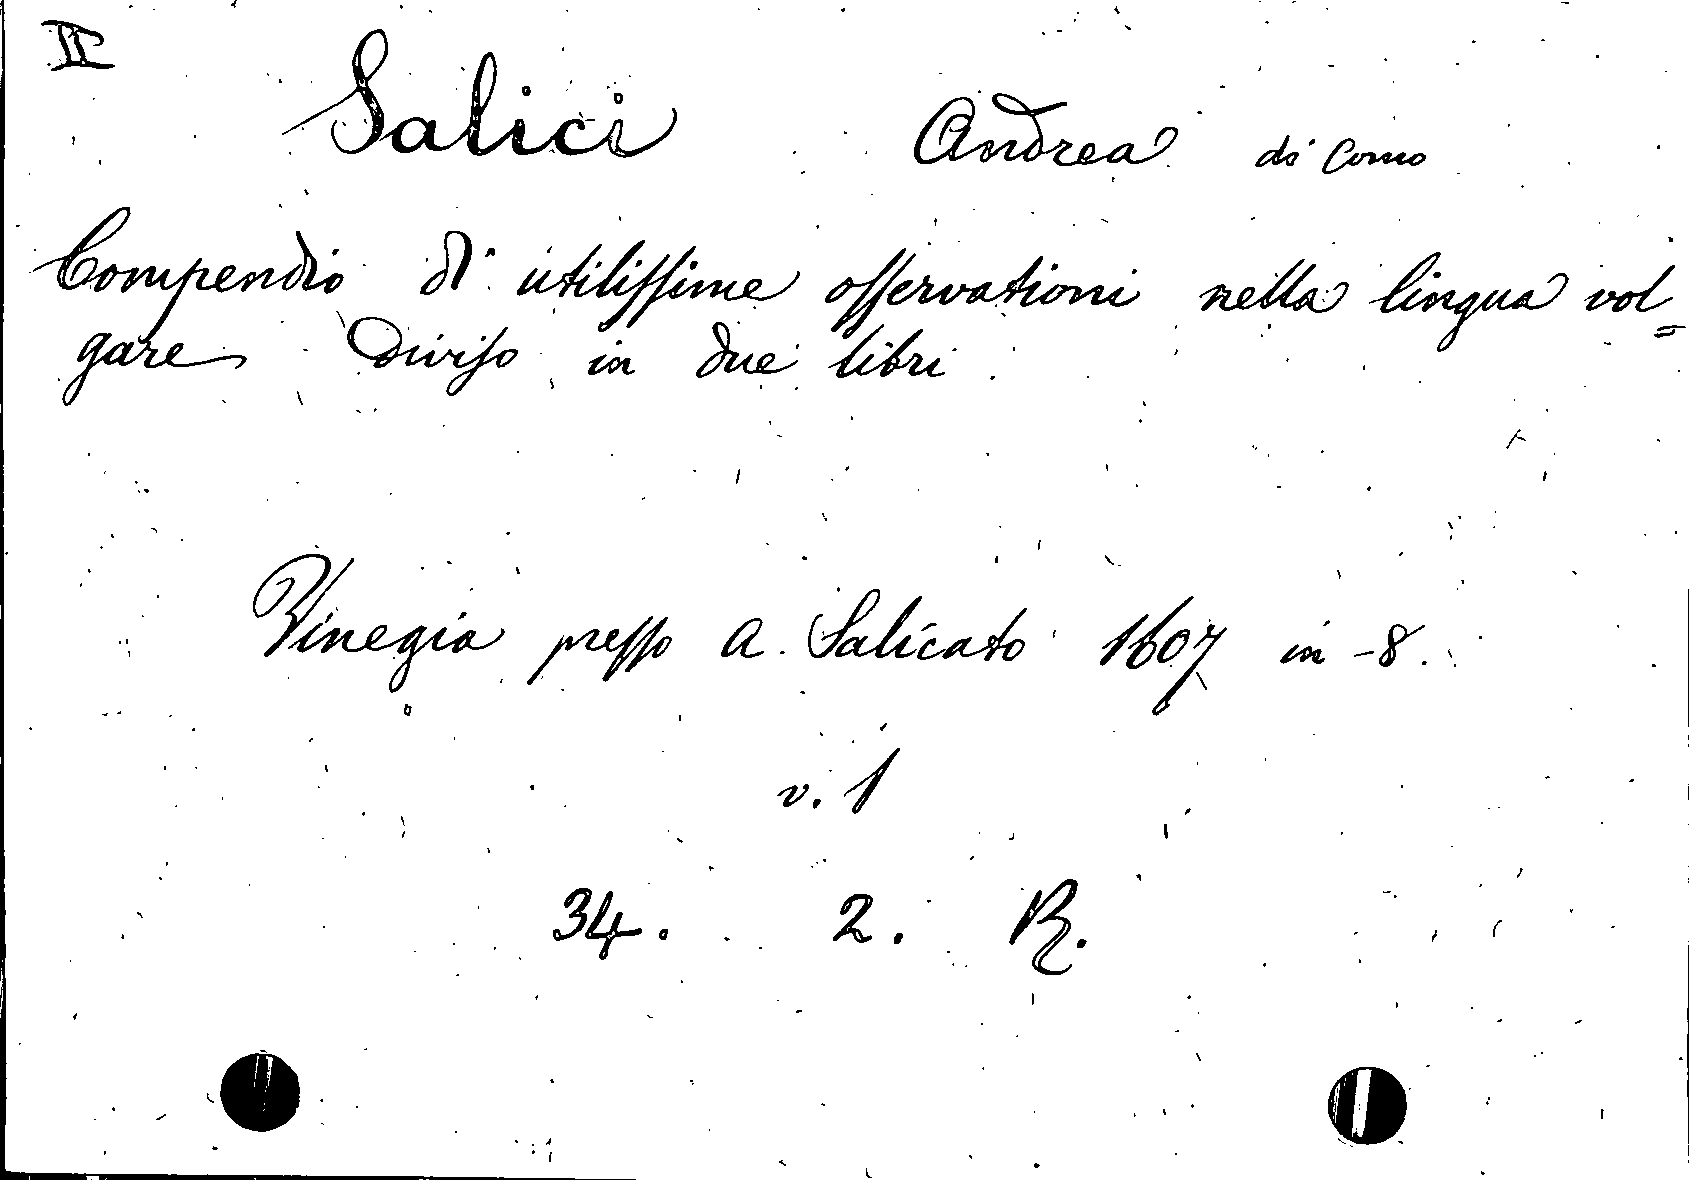 II
Salici Andrea di Como
Compendio di utilissime osservationi nella lingua vol=
gare Diviso in due libri
Vinegia presso A. Salicato 1607 in -8.
v. 1
34. 2. R.